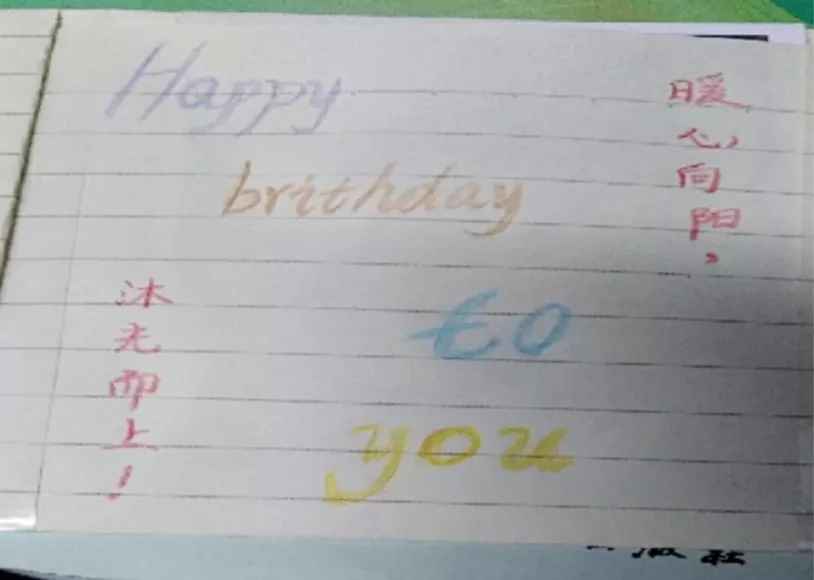 Happy
brithday
to
you
暖心向阳，
沐光而上！
版社